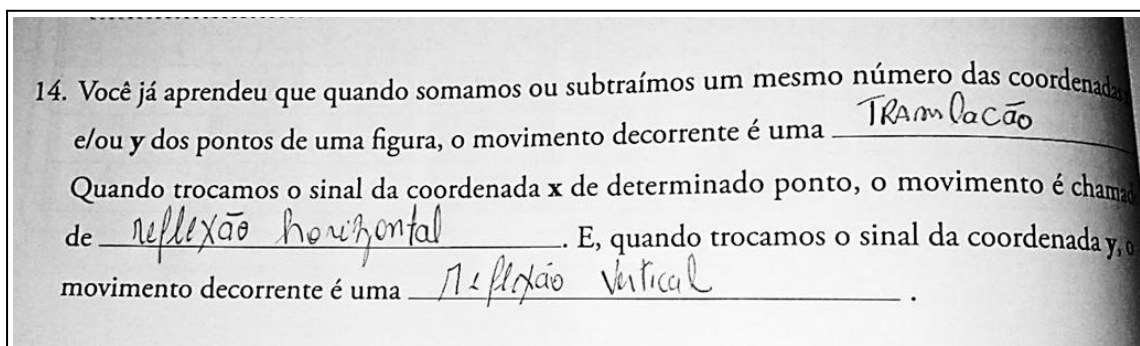 14. Você já aprendeu que quando somamos ou subtraímos um mesmo número das coordenadas
e/ou y dos pontos de uma figura, o movimento decorrente é uma TRAnslacão
Quando trocamos o sinal da coordenada x de determinado ponto, o movimento é chamad
de reflexão horizontal. E, quando trocamos o sinal da coordenada y, o
movimento decorrente é uma reflexão vertical.